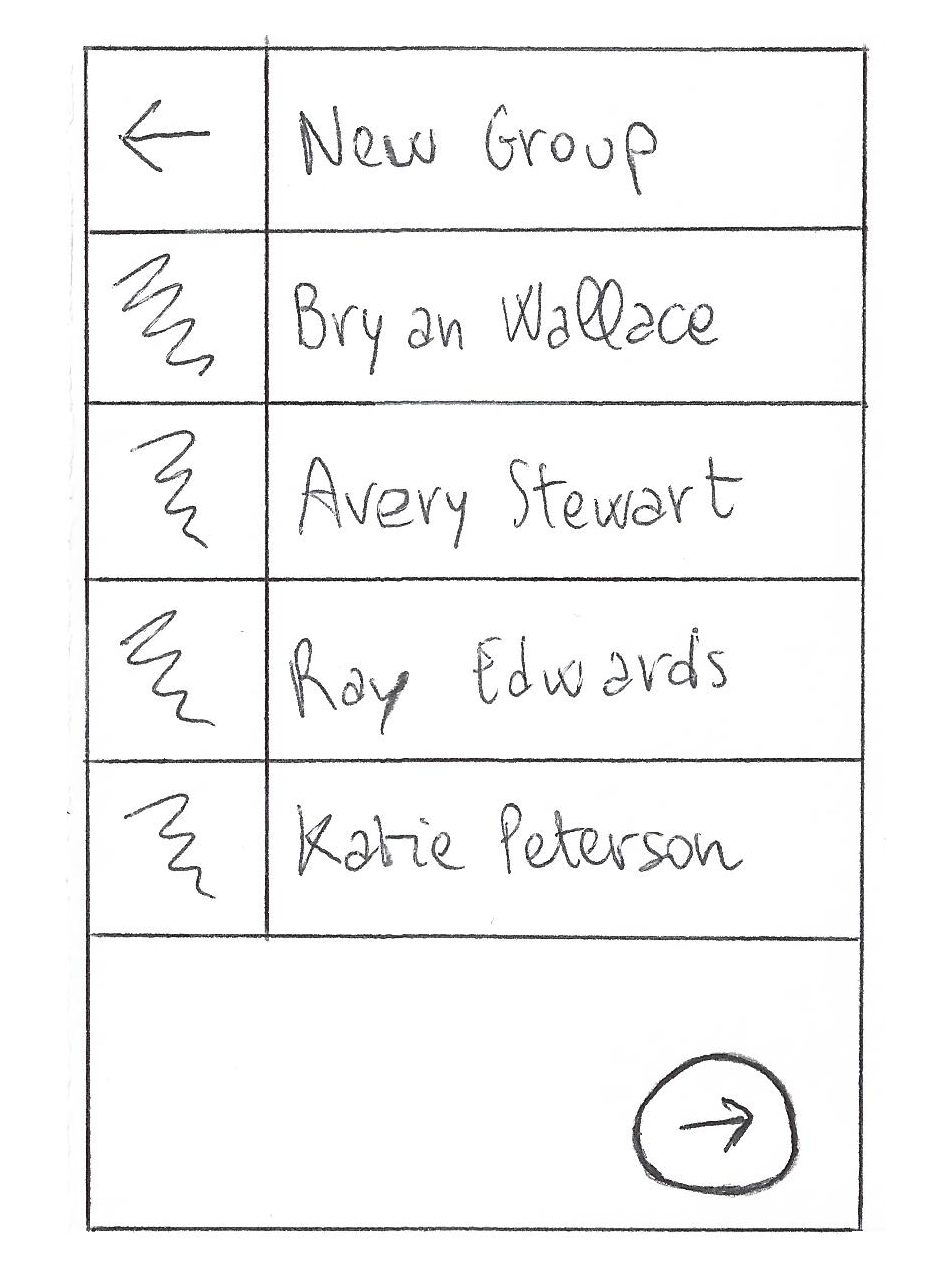 New Group
Bryan Wallace
Avery Stewart
Ray Edwards
Katie Peterson